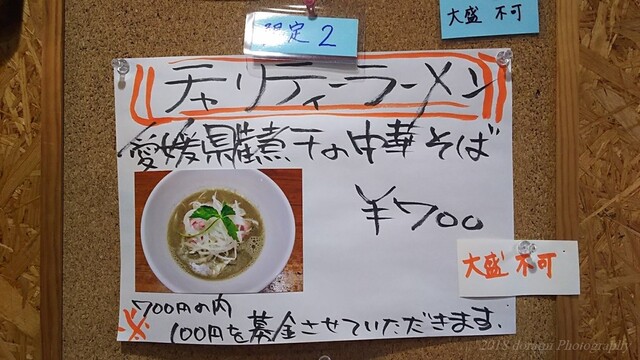 限定2
大盛 不可
チャリティーラーメン
愛媛県産煮干の中華そば
¥700
大盛 不可
700円の内
※100円を募金させていただきます.
2018 doramn Photography